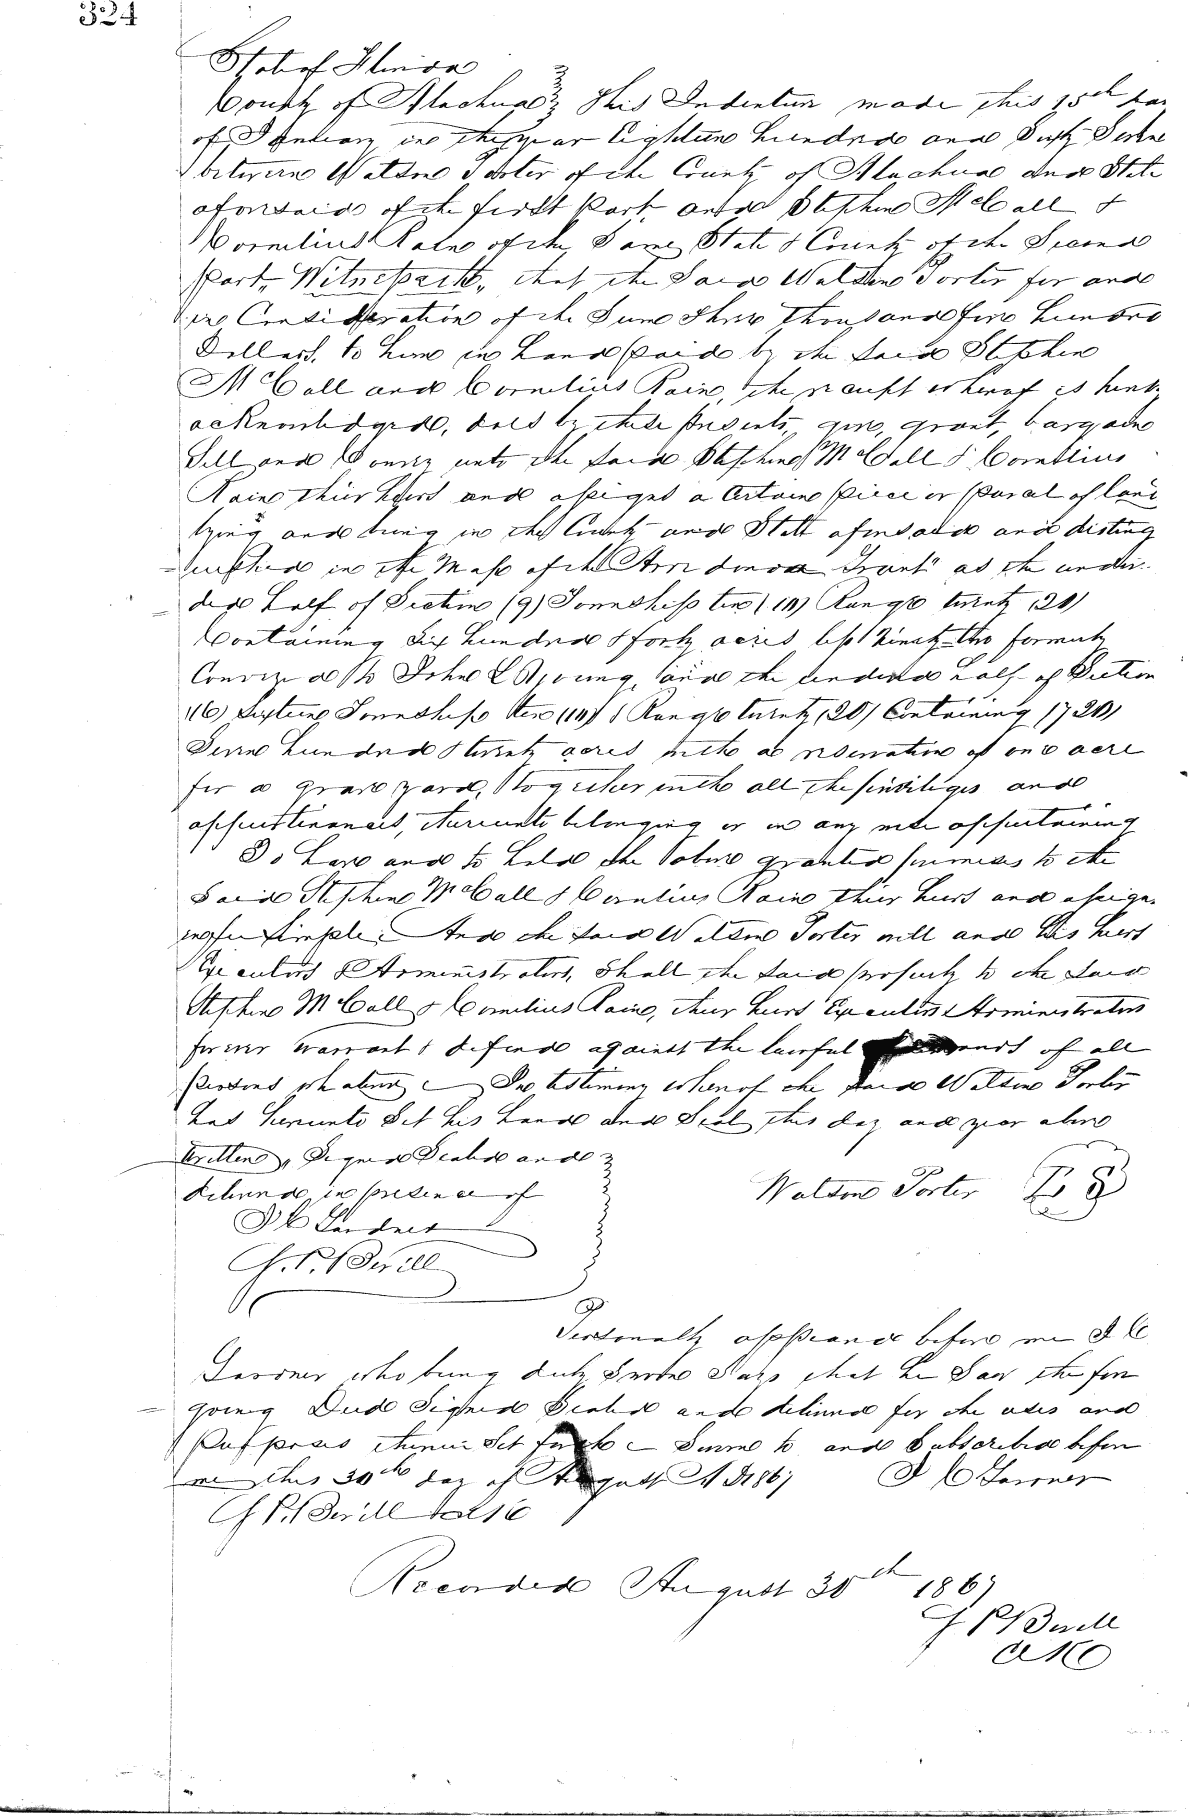 324
State of Florida
County of Alachua } This Indenture made this 15th day
of January in the year Eighteen hundred and Sixty Seven
between Watson Porter of the County of Alachua and State
aforesaid of the first Part and Stephen McCall &
Cornelius Rain of the Same State & County of the Second
Part, Witnesseth, that the Said Watson Porter for and
in Consideration of the Sum Three thousand five hundred
Dollars, to him in hand paid by the Said Stephen
McCall and Cornelius Rain, the receipt whereof is hereby
acknowledged, does by these presents, give, grant, bargain
Sell and Convey unto the Said Stephen McCall & Cornelius
Rain thier heirs and assigns a Certain piece or parcel of land
lying and being in the County and State aforesaid and disting
uished in the Map of the Arredonda Grant as the undivi
ded half of Section (9) Township ten (10) Range twenty (20)
Containing Six hundred & forty acres less Ninety two formerly
Conveyed to John C and the undivided half of Section
(16) Sixteen Township ten (10) & Range twenty (20) Containing (720)
Seven hundred & twenty acres with a reservation of one acre
for a grave yard, together with all the priviliges and
appurtenances, thereunto belonging or in any wise appurtaining
To have and to hold the above granted premises to the
Said Stephen McCall & Cornelius Rain thier heirs and assigns
in fee Simple. And the Said Watson Porter will and his heirs
Executors & Administrators, Shall the Said property to the Said
Stephen McCall & Cornelius Rain, thier heirs Executors & Administrators
forever warrant & defend against the lawful demands of all
persons whatever In testimony whereof the Said Watson Porter
has hereunto Set his hand and Seal this day and year above
Written, Signed Sealed and
delivered in presence of
Watson Porter L S
J C Gardner
Personally appeared before me J C
Gardner who being duly Sworn Says that he Saw the fore
going Deed Signed Sealed and delivered for the uses and
Purposes therein Set forth Sworn to and Subscribed before
me this 30th day of August A D 1867 J C Gardner
Recorded August 30th 1867